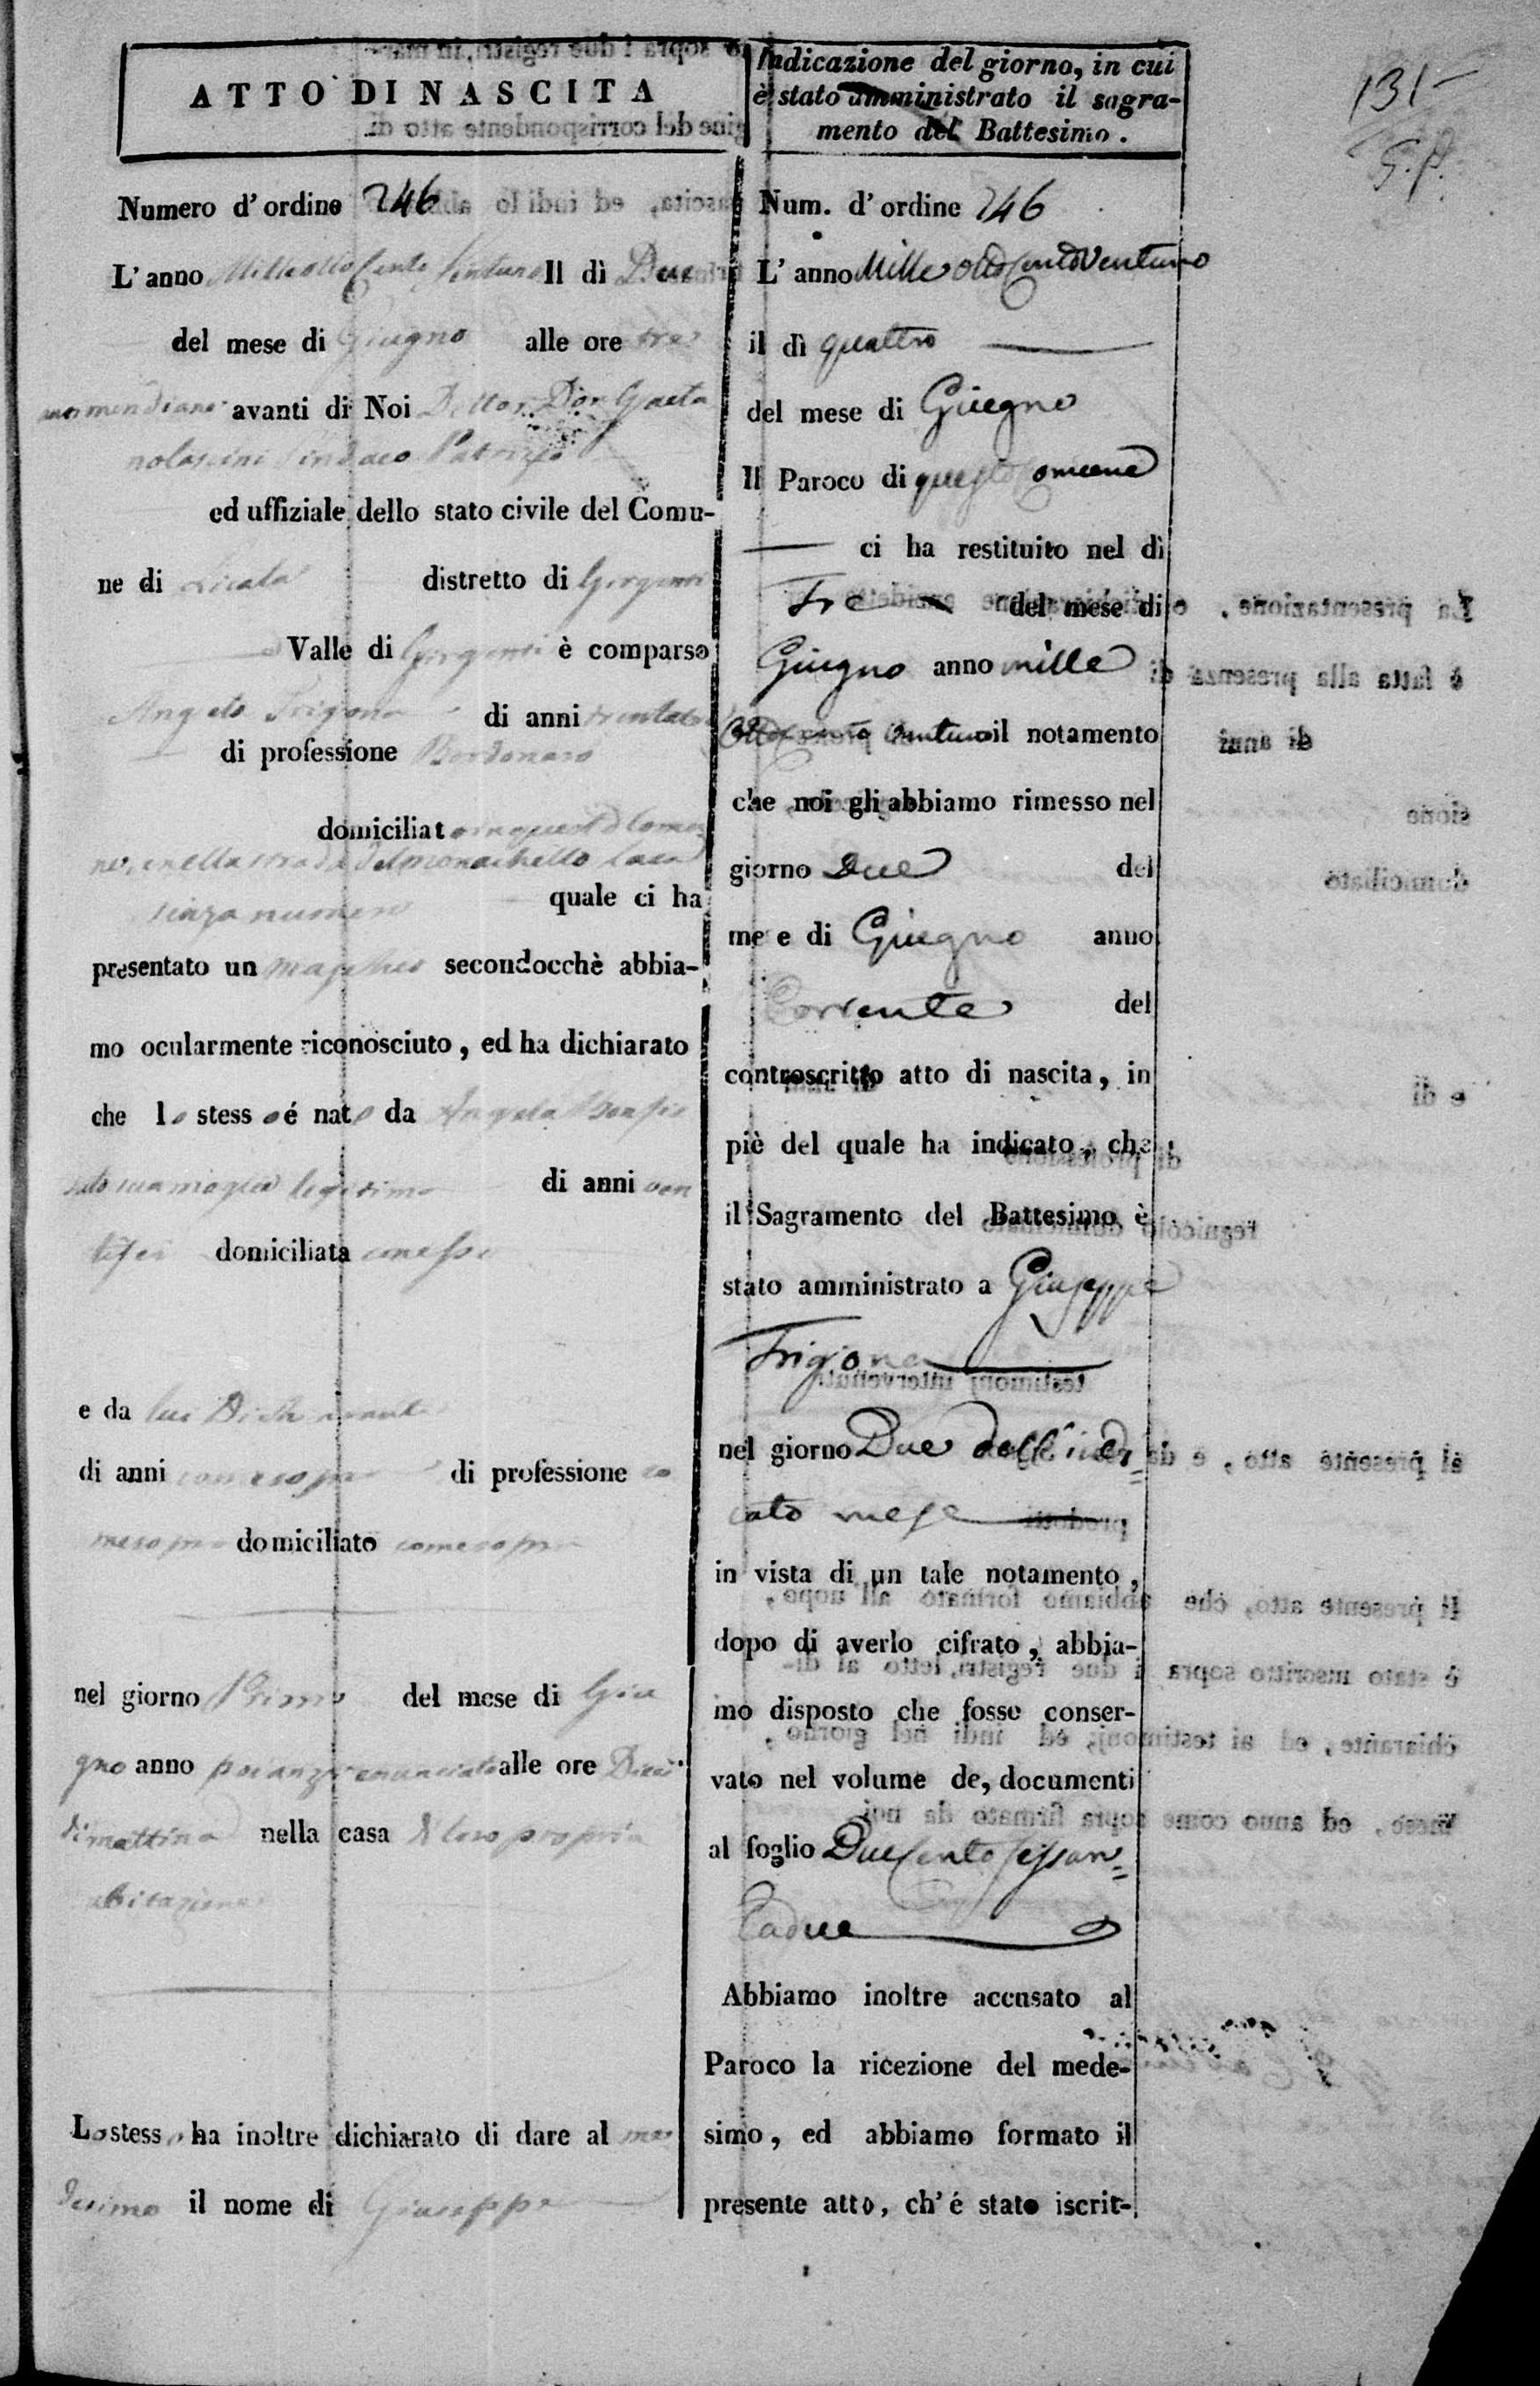 131
G. P.
ATTO DI NASCITA
Numero d' ordine 246
L' anno Milleottocento ventuno Il dì Due
del mese di Giugno alle ore tre
avanti di Noi Dottor Don Gaeta
no Sindaco Patrizio
ed uffiziale dello stato civile del Comu-
ne di Licata distretto di Girgenti
Valle di Girgenti è comparso
Angelo Trigona di anni trentatre
di professione Bordonaro
domiciliato in questo Comu
ne, e nella strada del Monachello Casa
senza numero quale ci ha
presentato un maschio secondocchè abbia-
mo ocularmente riconosciuto, ed ha dichiarato
che lo stesso é nato da Angela
sua moglie legitima di anni ven
tisei domiciliata con esso
e da lui Dichiarante
di anni come sopra di professione co
me sopra domiciliato come sopra
nel giorno Primo del mese di Giu
gno anno poianzi enunciato alle ore Dieci
di mattina nella casa di loro propria
abitazione
Lo stesso ha inoltre dichiarato di dare al me
desimo il nome di Giuseppe
Indicazione del giorno, in cui
è stato amministrato il sagra-
mento del Battesimo.
Num. d' ordine 246
L' anno Mille ottocento Ventuno
il dì quattro
del mese di Giugno
Il Paroco di questo Comune
ci ha restituito nel dì
Tre del mese di
Giugno anno mille
ottocento ventuno il notamento
che noi gli abbiamo rimesso nel
giorno Due del
mese di Giugno anno
Corrente del
controscritto atto di nascita, in
piè del quale ha indicato, che
il Sagramento del Battesimo è
stato amministrato a Giuseppe
Trigona
nel giorno Due dell' indi=
cato mese
in vista di un tale notamento,
dopo di averlo cifrato, abbia-
mo disposto che fosse conser-
vato nel volume de, documenti
al foglio Duecento sessan=
tadue
Abbiamo inoltre accusato al
Paroco la ricezione del mede-
simo, ed abbiamo formato il
presente atto, ch' é stato iscrit-